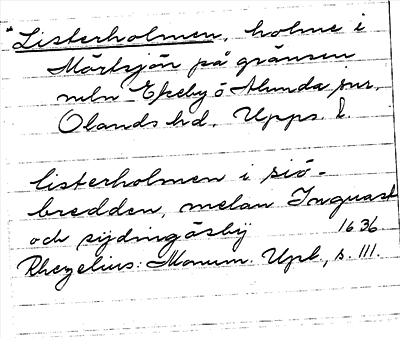 "Listerholmen, holme i
Mörtsjön på gränsen
meln Ekeby o Alunda snr,
Olands hd, Upps. l.
listerholmen i siö-
bredden, melan Inguast
och sydingäsbÿ 1636
Rhezelius: Monum. Upl., s. III.